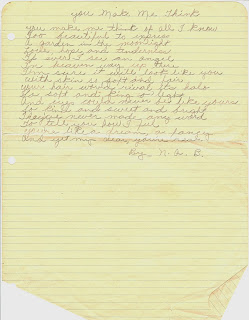 You Make Me Think
You make me think of all I know
Too beautiful to express
A garden in the moonlight
Love, hope and tenderness
If ever I see an angel
In heaven way up there
I'm sure it will look like you
With skin so soft and fair
Your hair would reveal its halo
So soft and king of light
And eyes could never be like yours
So and sweet and bright
They've never made any word
To tell you how I feel
You're like a dream, a fancy
And yet my dear you're real
By N. Q. B.